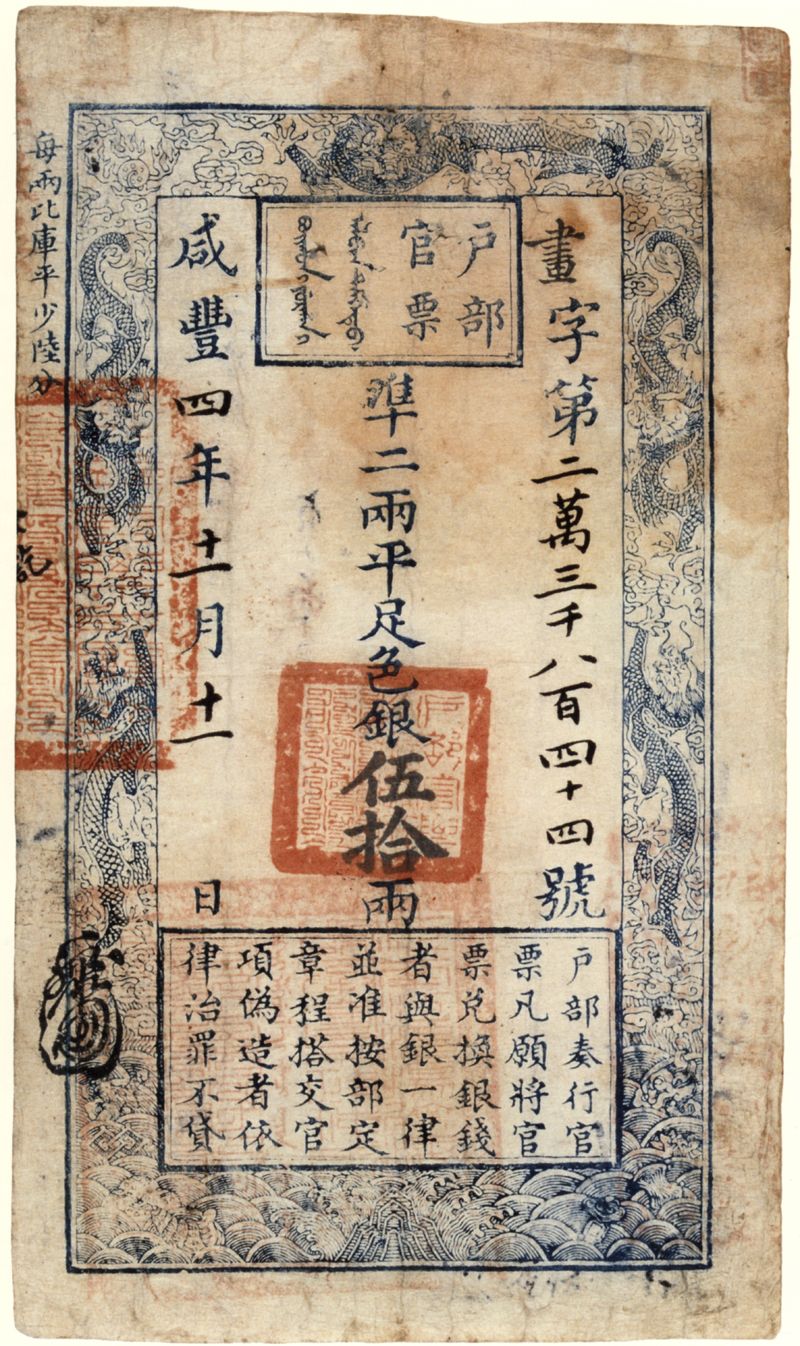 畫字第二萬三千八百四十四號
戶部
官票
準二兩平足色銀伍拾兩
咸豐四年十一月十一日
每兩比庫平少陸分
戶部奏行官
票凡願將官
票兑換銀錢
者與銀一律
並准按部定
章程搭交官
項偽造者依
律治罪不貸